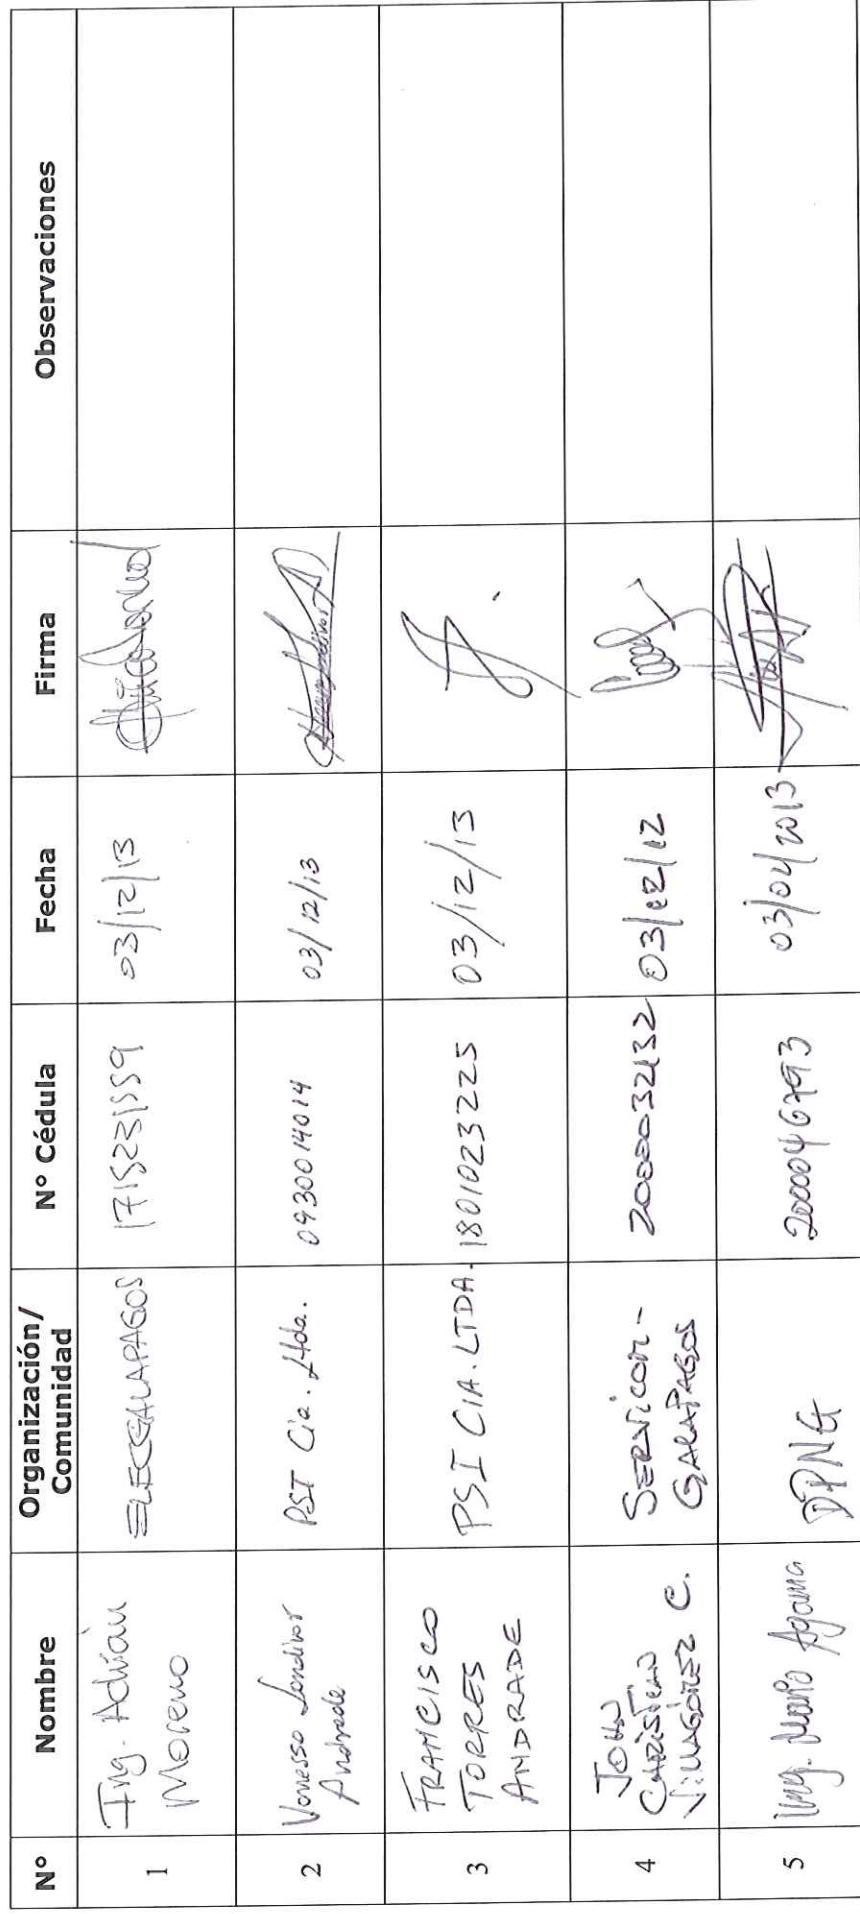 Nº Nombre Organización/ Comunidad Nº Cédula Fecha Firma Observaciones
1 Ing. Adrián Moreno ELECGALAPAGOS 1715231559 03/12/13
2 Vanessa Landivar Andrade PSI Cia. Ltda. 0930014014 03/12/13
3 FRANCISCO TORRES ANDRADE PSI CIA. LTDA. 1801023225 03/12/13
4 JOHN CHRISTIAN VILLAGÓMEZ C. SERVICOM - GALAPAGOS 03/12/12
5 Ing. DPNG 03/04/2013